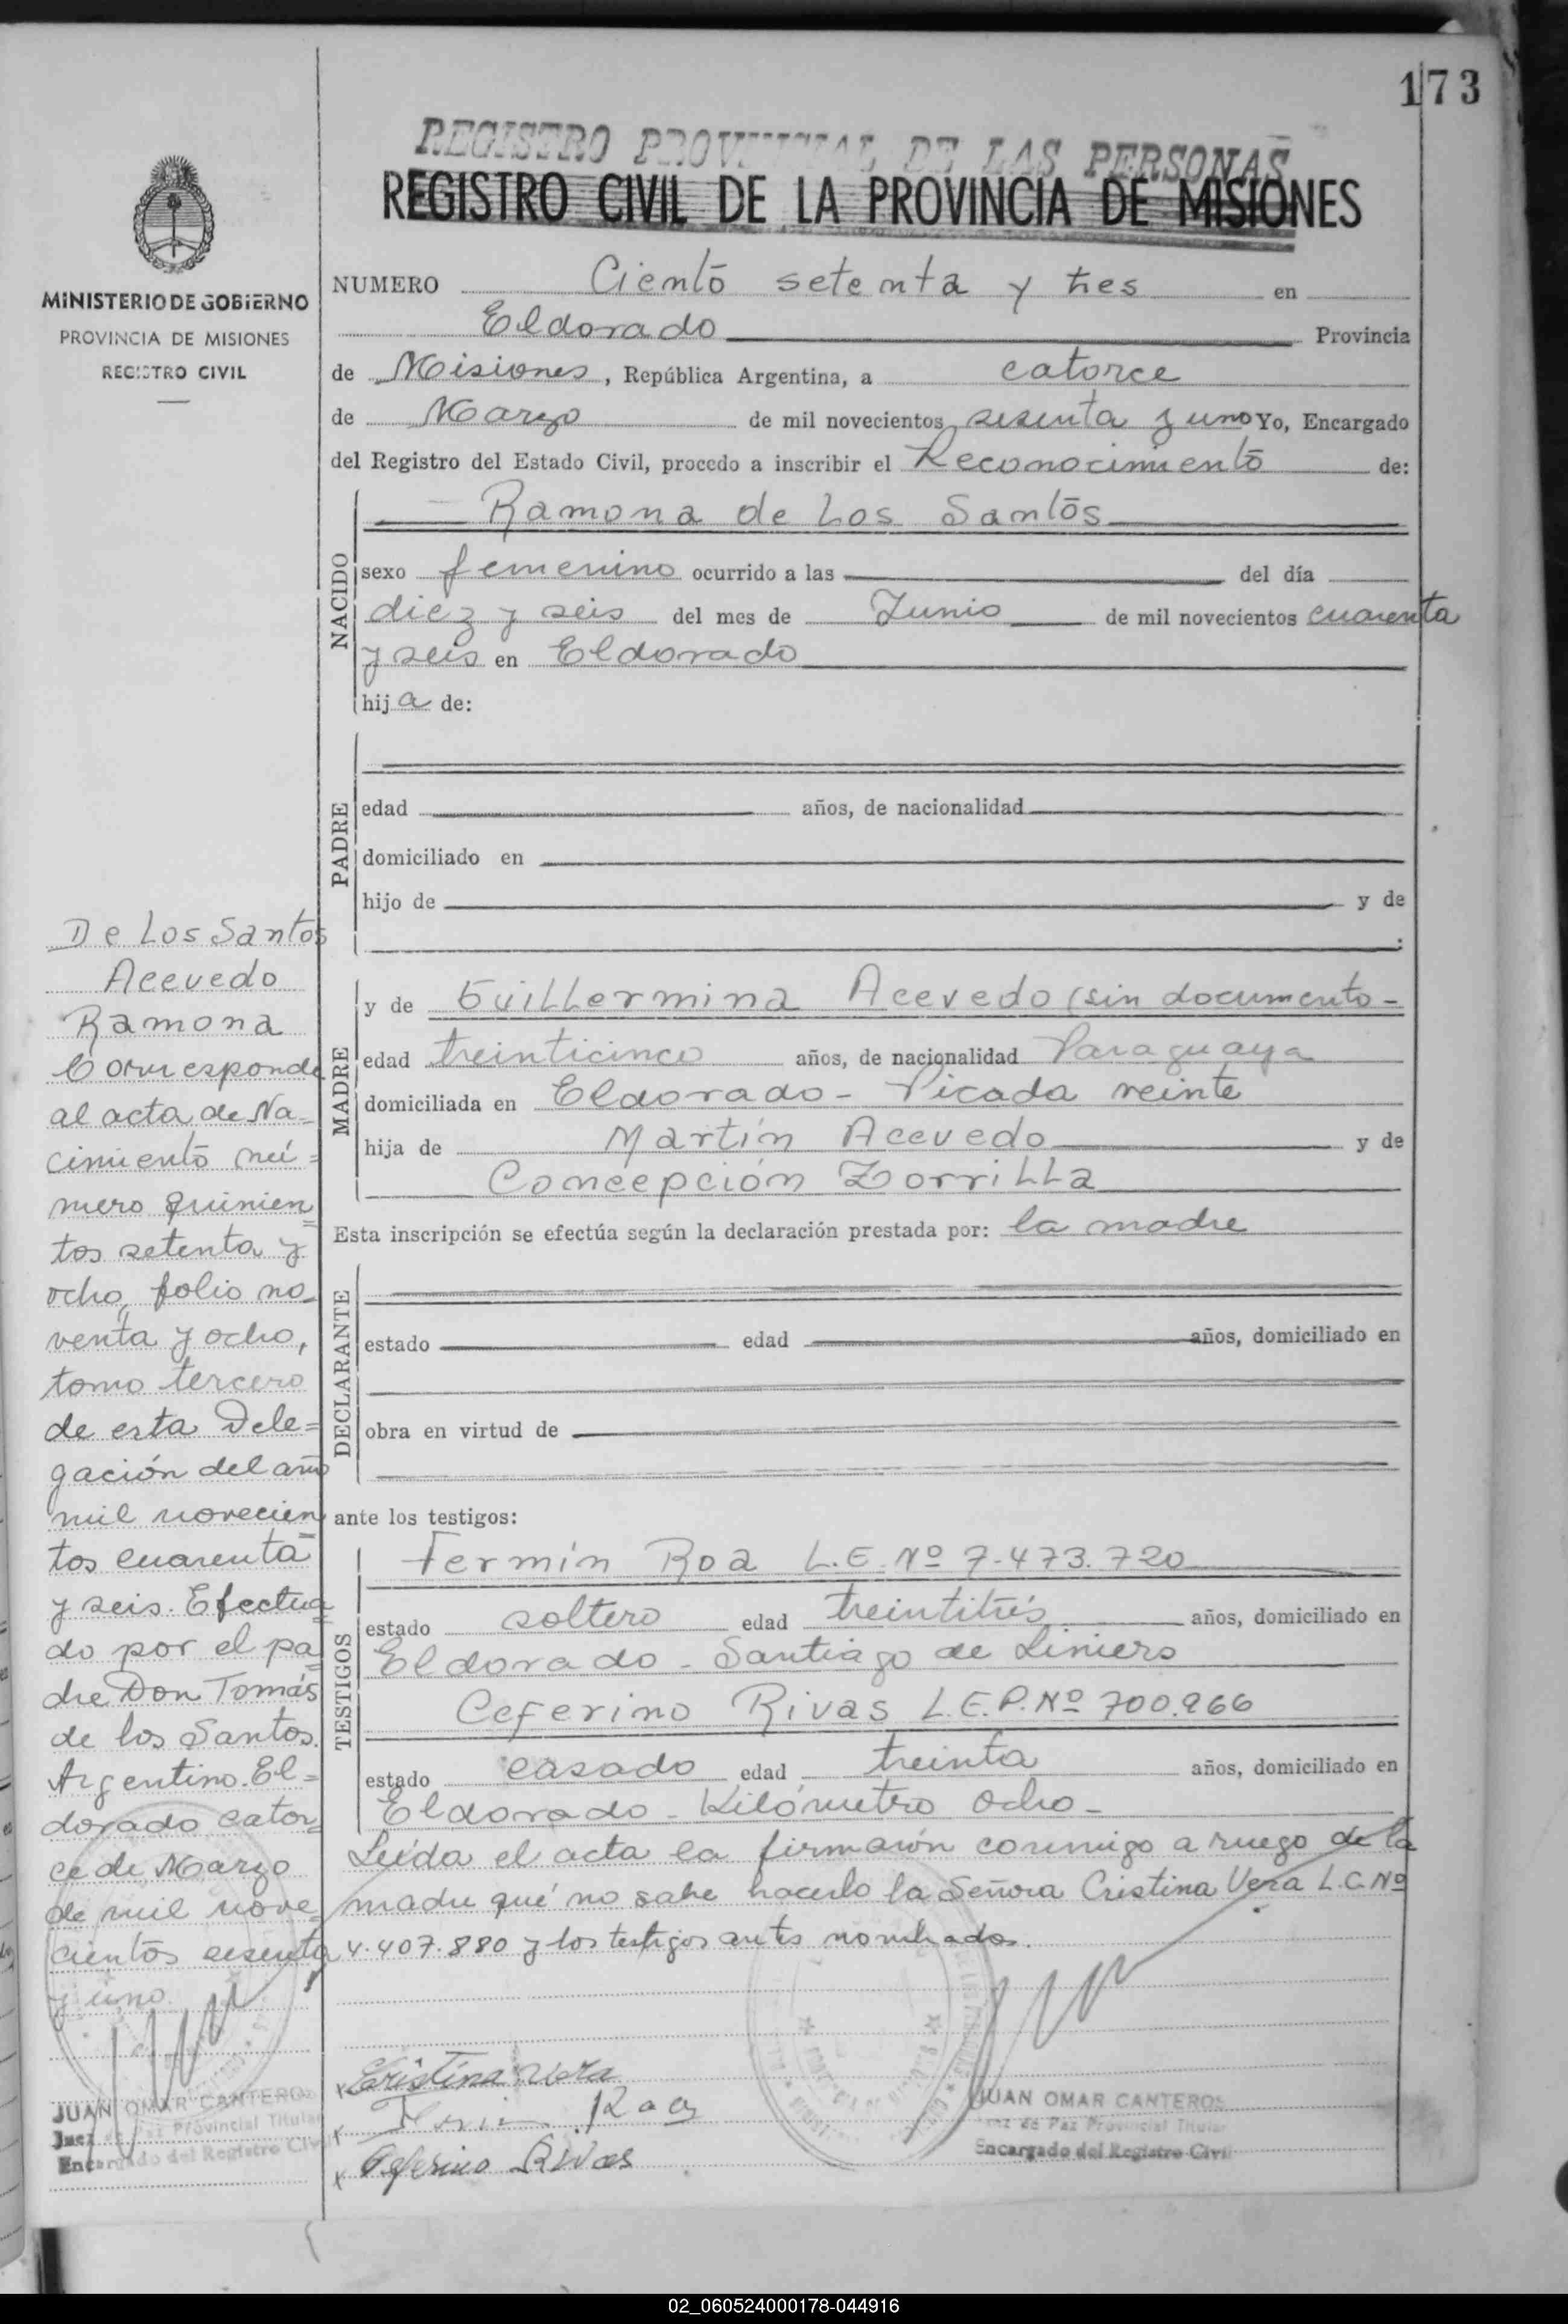 173
REGISTRO PROVINCIAL DE LAS PERSONAS
REGISTRO CIVIL DE LA PROVINCIA DE MISIONES
MINISTERIO DE GOBIERNO
PROVINCIA DE MISIONES
REGISTRO CIVIL
NUMERO Ciento setenta y tres en
Eldorado Provincia
de Misiones, República Argentina, a catorce
de Marzo de mil novecientos sesenta y uno Yo, Encargado
del Registro del Estado Civil, procedo a inscribir el Reconocimiento de:
NACIDO
Ramona de Los Santos
sexo femenino ocurrido a las del día
diez y seis del mes de Junio de mil novecientos cuarenta
y seis en Eldorado
hij a de:
PADRE
edad años, de nacionalidad
domiciliado en
hijo de y de
:
MADRE
y de Guillermina Acevedo (sin documento-
edad treinticinco años, de nacionalidad Paraguaya
domiciliada en Eldorado - Picada veinte
hija de Martín Acevedo y de
Concepción Zorrilla
Esta inscripción se efectúa según la declaración prestada por: la madre
DECLARANTE
estado edad años, domiciliado en
obra en virtud de
ante los testigos:
TESTIGOS
Fermín Roa L.E. Nº 7.473.720
estado soltero edad treintitrés años, domiciliado en
Eldorado - Santiago de Liniers
Ceferino Rivas L.E.P. Nº 700.966
estado casado edad treinta años, domiciliado en
Eldorado - Kilómetro ocho-
Leída el acta la firmaron conmigo a ruego de la
madre qué no sabe hacerlo la Señora Cristina Vera L.C. Nº
4.407.880 y los testigos antes nombrados.
Cristina Vera
Roa
Ceferino Rivas
JUAN OMAR CANTEROS
Juez de Paz Provincial Titular
Encargado del Registro Civil
De Los Santos
Acevedo
Ramona
Corresponde
al acta de Na=
cimiento nú=
mero quinien=
tos setenta y
ocho, folio no-
venta y ocho,
tomo tercero
de esta Dele=
gación del año
mil novecien
tos cuarenta
y seis. Efectua
do por el pa
dre Don Tomás
de los Santos.
Argentino. El=
dorado cator=
ce de Marzo
de mil nove
cientos sesenta
y uno.
JUAN OMAR CANTEROS
Juez de Paz Provincial Titular
Encargado del Registro Civil
02_060524000178-044916